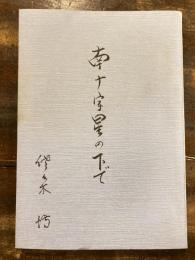 南十字星の下で
代々木 博